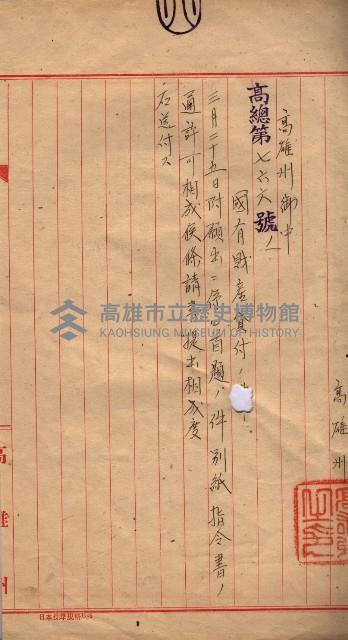 高雄州御中
高總第七六六號ノ一
高雄州
國有財產貸付ノ
三月二十五日附願出ニ係ル首題ノ件別紙指令書ノ
通許可相成候條請書提出相成度
右送付ス
高雄市立歷史博物館
KAOHSIUNG MUSEUM OF HISTORY
高雄州
日本標準規格B5